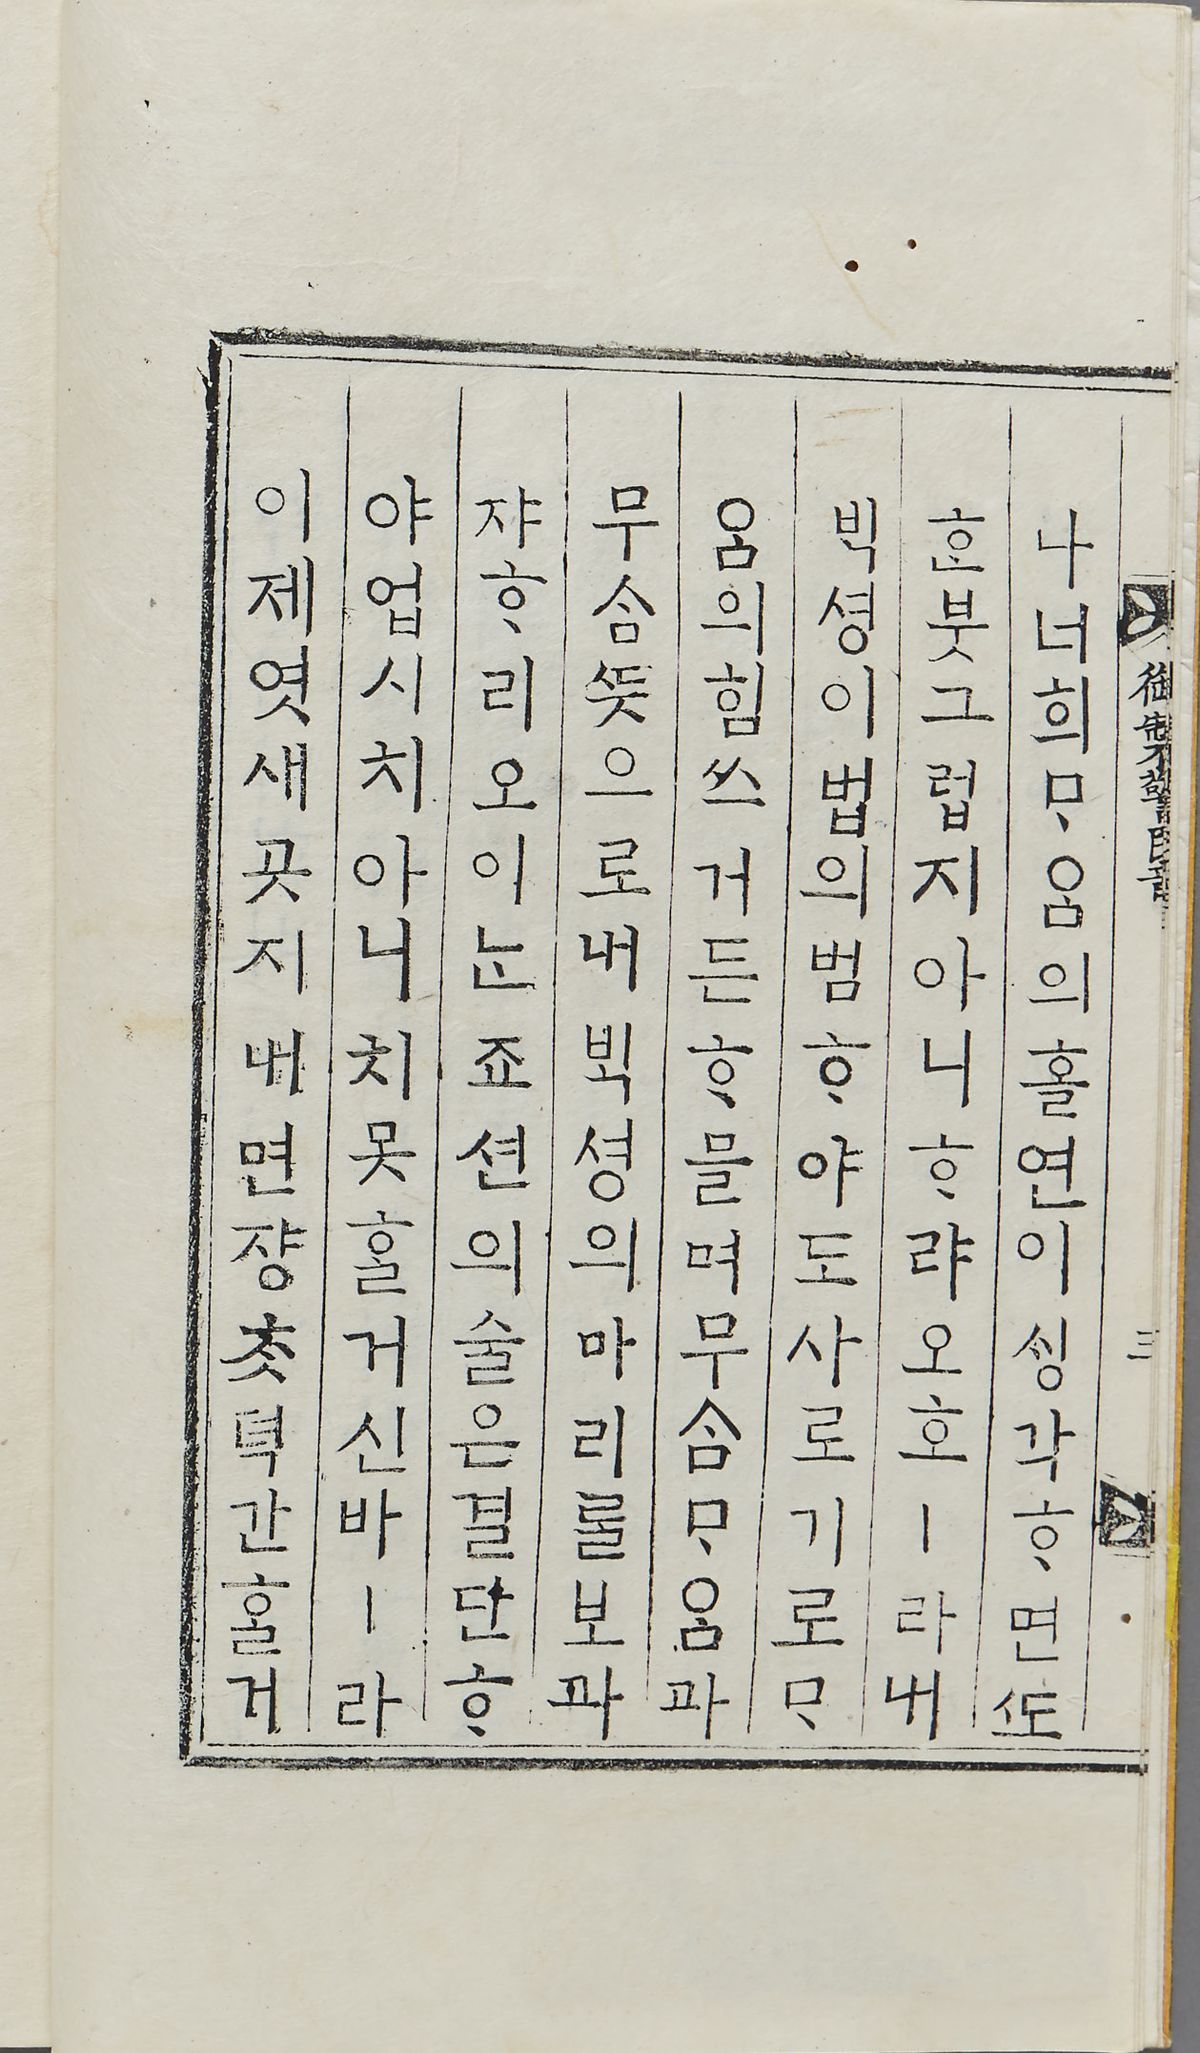 나너희ᄆᆞᄋᆞᆷ의홀연이ᄉᆡᆼ각ᄒᆞ면ᄯᅩ
ᄒᆞᆫ붓그럽지아니ᄒᆞ랴오호ㅣ라내
ᄇᆡᆨ셩이법의범ᄒᆞ야도사로기로ᄆᆞ
ᄋᆞᆷ의힘쓰거든ᄒᆞ믈며무ᄉᆞᆷᄆᆞᄋᆞᆷ과
무ᄉᆞᆷᄯᅳᆺ으로내ᄇᆡᆨ셩의마리ᄅᆞᆯ보과
쟈ᄒᆞ리오이ᄂᆞᆫ죠션의술은결단ᄒᆞ
야업시치아니치못ᄒᆞᆯ거신바ㅣ라
이제엿새곳지내면쟝ᄎᆞᆺᄐᆡᆨ간ᄒᆞᆯ거